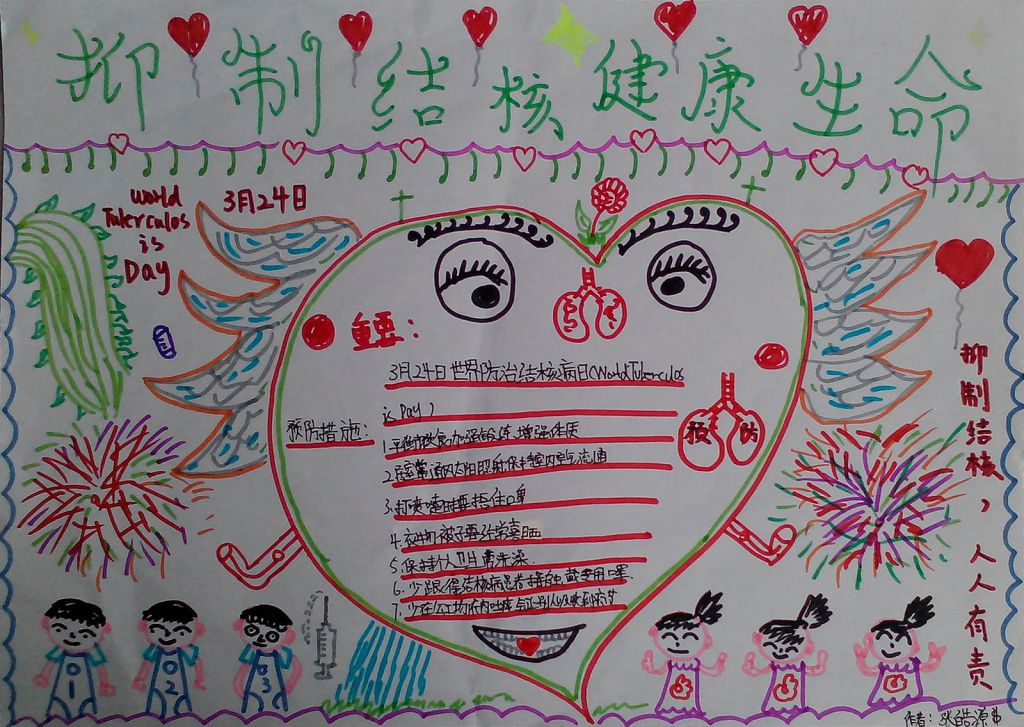 抑制结核健康生命
World
Tulerculos
is
Day
3月24日
重要:
3月24日世界防治结核病日(World Tulerculos
is Day)
预防措施:
1.平时饮食加强锻练,增强体质
2.居室常通风太阳照射保持室内空气流通
3.打喷嚏时要捂住口鼻
4.衣物被子要经常暴晒
5.保持个人卫生常洗澡
6.少跟得结核病患者接触,戴口罩
7.少在公共场所内吐痰
预防
抑制结核,人人有责
1
2
3
作者:张浩源